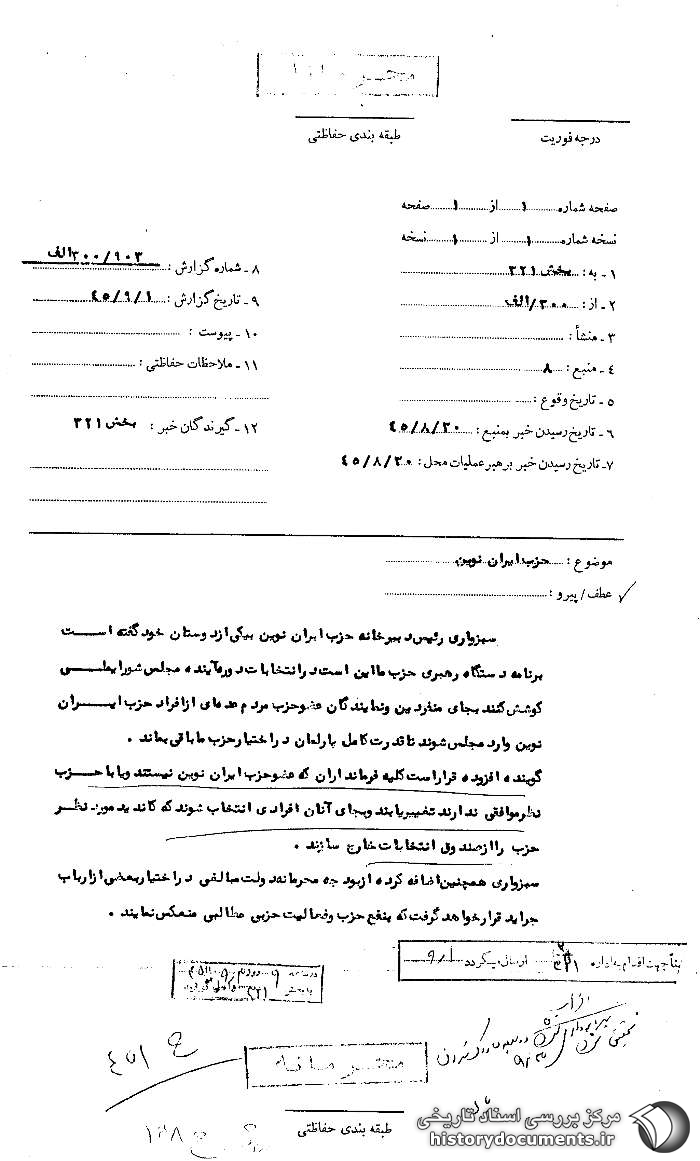 محرمانه
درجه فوریت
طبقه بندی حفاظتی
صفحه شماره ۱ از ۱ صفحه
نسخه شماره ۱ از ۱ نسخه
۱ - به : بخش ۳۲۱
۲ - از : ۳۰۰/الف
۳ - منشأ :
۴ - منبع : ۸
۵ - تاریخ وقوع :
۶ - تاریخ رسیدن خبر بمنبع : ۴۵/۸/۳۰
۷ - تاریخ رسیدن خبر برهبر عملیات محل : ۴۵/۸/۳۰
۸ - شماره گزارش : ۳۰۰/۹۰۳الف
۹ - تاریخ گزارش : ۴۵/۹/۱
۱۰ - پیوست :
۱۱ - ملاحظات حفاظتی :
۱۲ - گیرندگان خبر : بخش ۳۲۱
موضوع : حزب ایران نوین
عطف / پیرو :
سبزواری رئیس دبیرخانه حزب ایران نوین بیکی از دوستان خود گفته است
برنامه دستگاه رهبری حزب ما این است در انتخابات دوره آینده مجلس شورایملی
کوشش کنند بجای منفردین و نمایندگان عضو حزب مردم عده ای از افراد حزب ایران
نوین وارد مجلس شوند تا قدرت کامل پارلمان در اختیار حزب ما باقی بماند .
گوینده افزوده قرار است کلیه فرمانداران که عضو حزب ایران نوین نیستند ویا با حزب
نظر موافقی ندارند تغییر یابند و بجای آنان افرادی انتخاب شوند که کاندید مورد نظر
حزب را از صندوق انتخابات خارج سازند .
سبزواری همچنین اضافه کرده از بودجه محرمانه دولت مبالغی در اختیار بعضی از ارباب
جراید قرار خواهد گرفت که بنفع حزب و فعالیت حزبی مطالبی منعکس نمایند .
جهت اقدام به اداره ۳۲۱ ارسال میگردد ۹/۱
محرمانه
طبقه بندی حفاظتی
مرکز بررسی اسناد تاریخی
historydocuments.ir